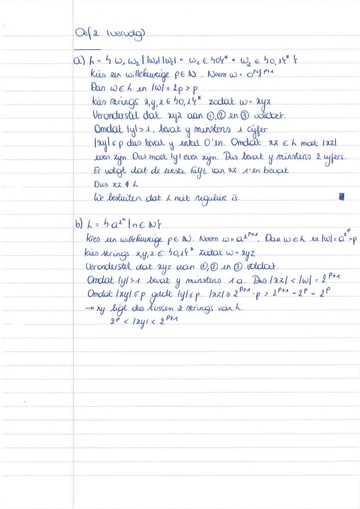 Oef 2 (vervolg)
a) L = { w₁ w₂ | |w₁| = |w₂| ∧ w₁ ∈ {0}* ∧ w₂ ∈ {0,1}* }
Kies een willekeurige p ∈ ℕ. Neem w =
Dan w ∈ L en |w| = 2p > p
Kies strings x,y,z ∈ {0,1}* zodat w = xyz
Veronderstel dat xyz aan ①,② en ③ voldoet.
Omdat |y| > 1, bevat y minstens 1 cijfer
|xy| ≤ p dus bevat y enkel 0'en. Omdat xz ∈ L moet |xz|
even zijn. Dus moet |y| even zijn. Dus bevat y minstens 2 cijfers.
Er volgt dat de eerste helft van xz 1'en bevat
Dus xz ∉ L
We besluiten dat L niet regulier is.
b) L = { a^2^n | n ∈ ℕ }
Kies een willekeurige p ∈ ℕ. Neem w = a^2^p+1. Dan w ∈ L en |w| = > p
Kies strings x,y,z ∈ {0,1}* zodat w = xyz
Veronderstel dat xyz aan ①,② en ③ voldoet.
Omdat |y| > 1 bevat y minstens 1 a. Dus |xz| < |w| = 2^p+1
Omdat |xy| ≤ p geldt |y| ≤ p. |xz| ≥ 2^p+1 - p > 2^p+1 - 2^p = 2^p
→ xy ligt dus tussen 2 strings van L.
2^p < |xy| < 2^p+1